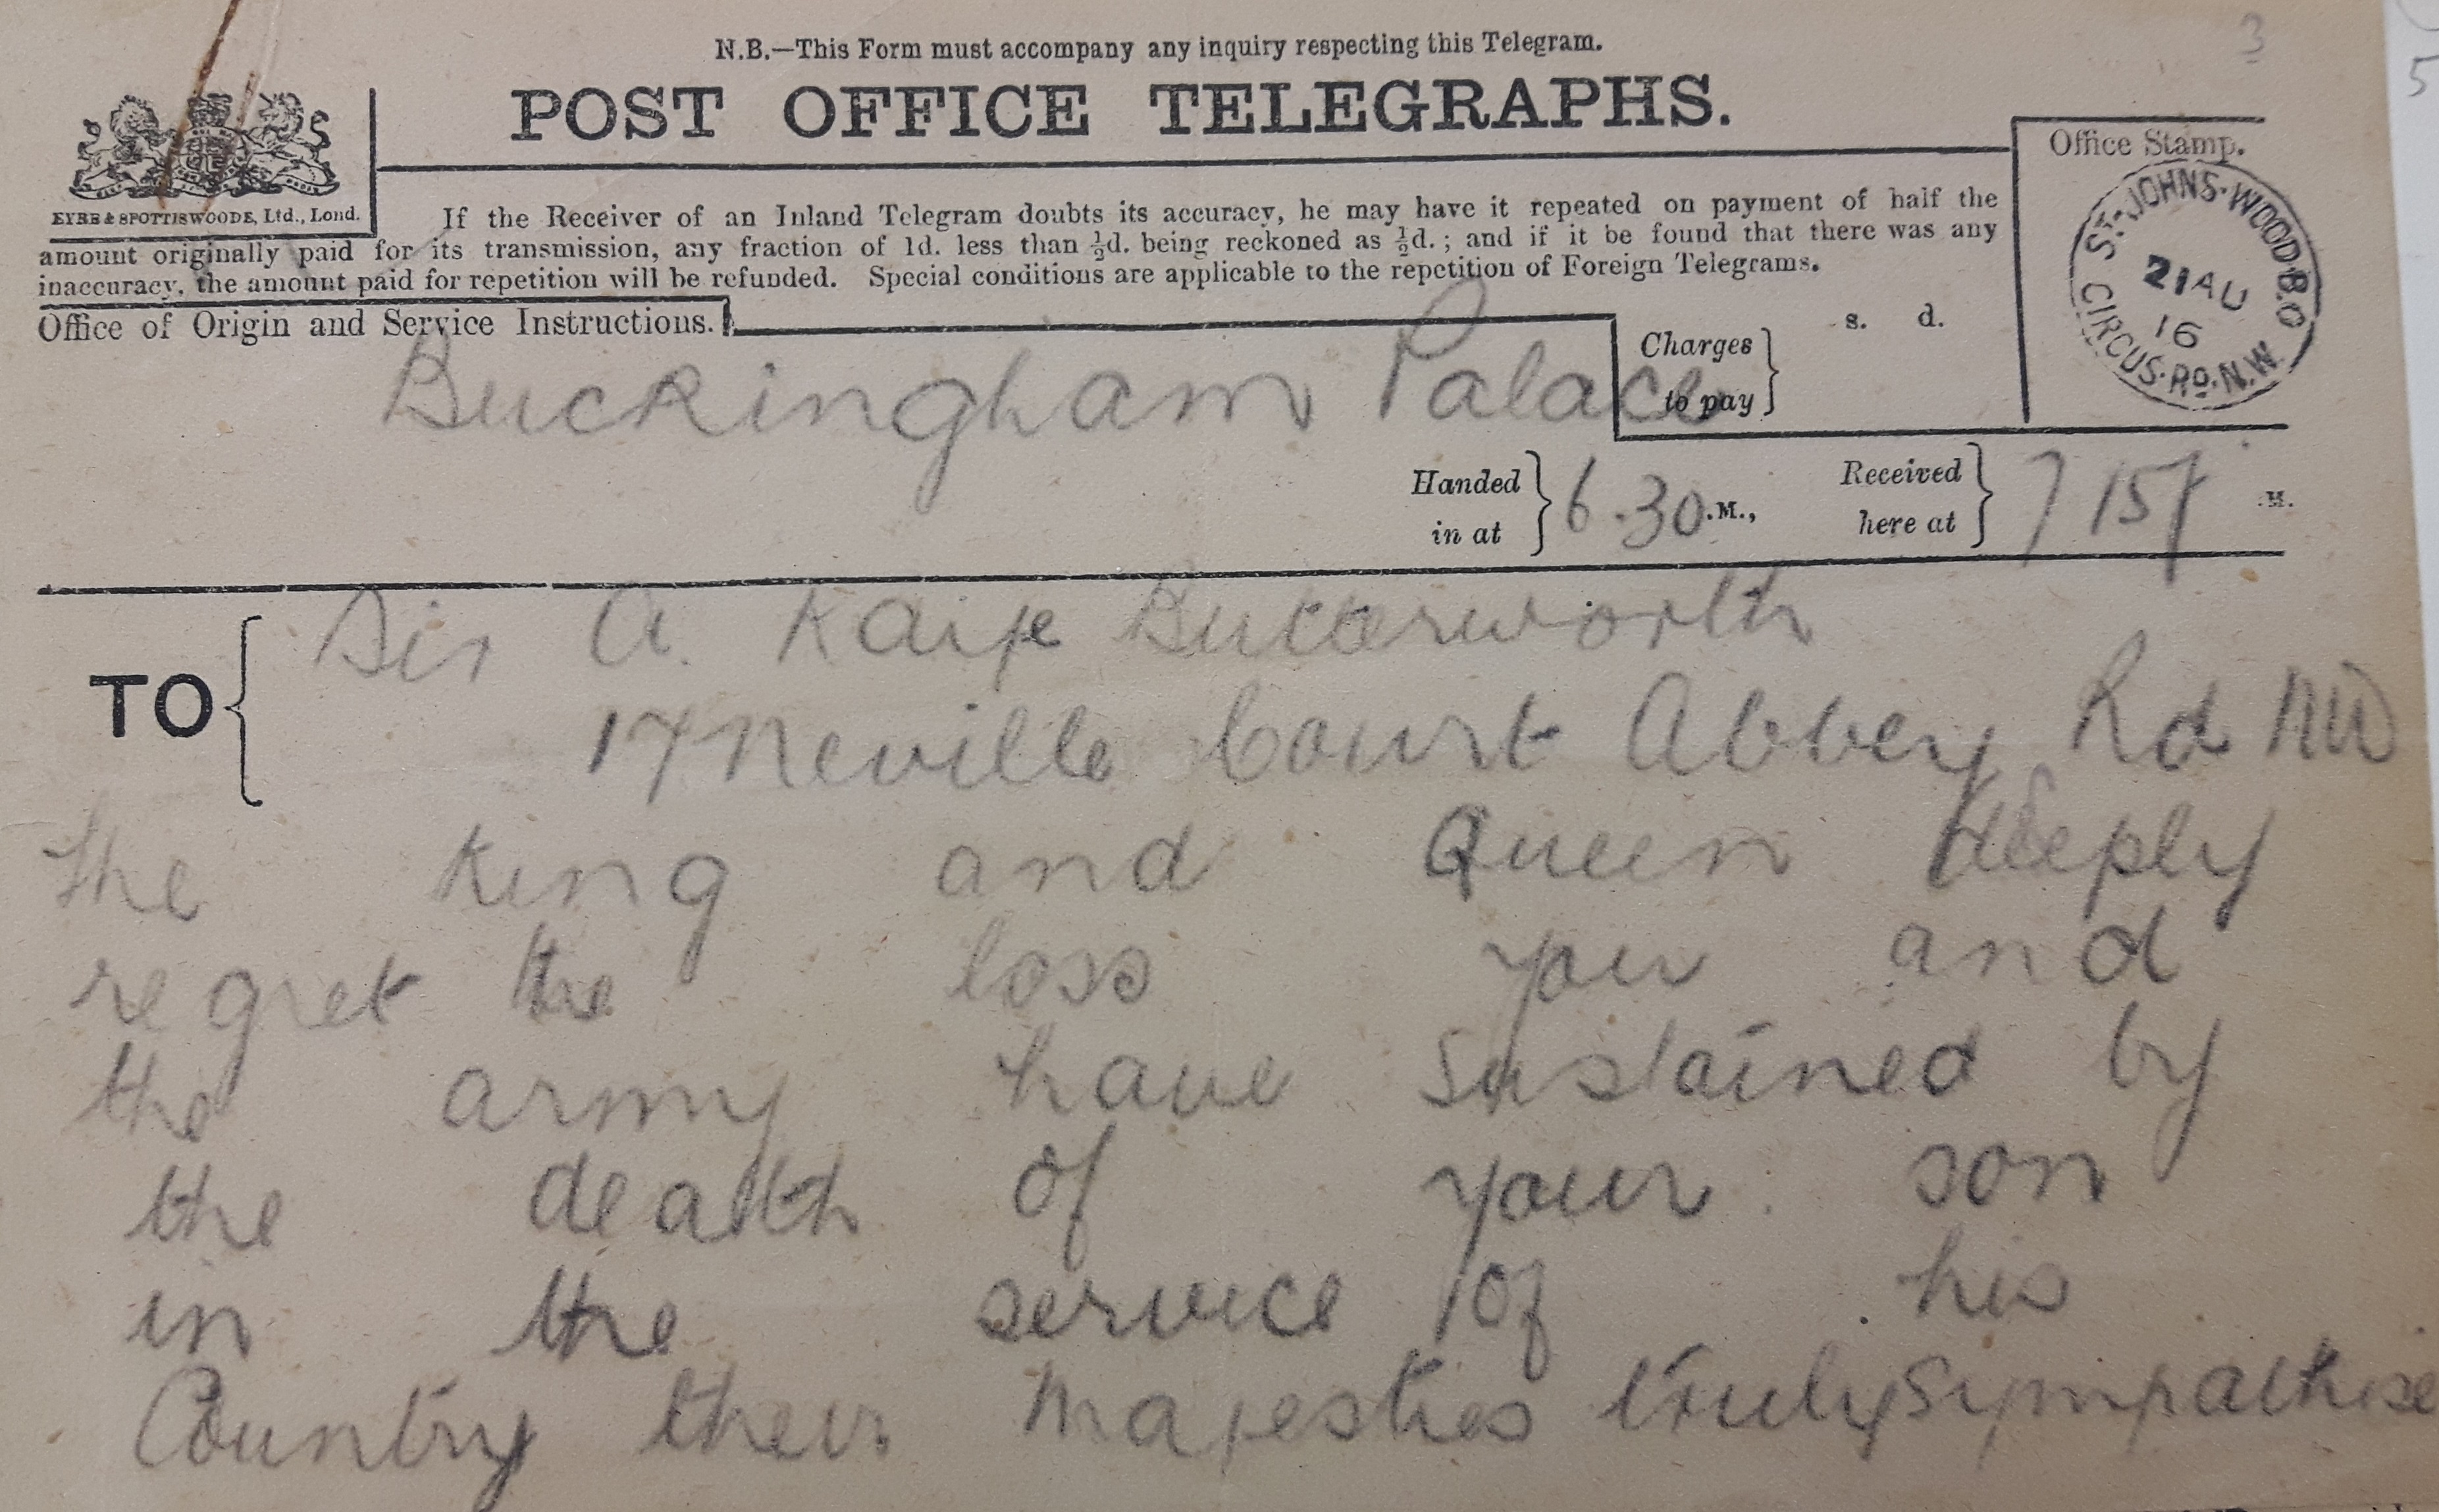 3
5
N.B.—This Form must accompany any inquiry respecting this Telegram.
POST OFFICE TELEGRAPHS.
EYRE & SPOTTISWOODE, Ltd., Lond.
If the Receiver of an Inland Telegram doubts its accuracy, he may have it repeated on payment of half the
amount originally paid for its transmission, any fraction of 1d. less than ½d. being reckoned as ½d.; and if it be found that there was any
inaccuracy, the amount paid for repetition will be refunded. Special conditions are applicable to the repetition of Foreign Telegrams.
Office Stamp.
ST. JOHNS. WOOD. B.O
21 AU
16
CIRCUS. RD. N.W
Office of Origin and Service Instructions.
Buckingham Palace
Charges
to pay
s. d.
Handed
in at
6.30 .M.,
Received
here at
7 15 .M.
TO
Sir A. Kaye Butterworth
17 Neville Court Abbey Rd NW
The King and Queen deeply
regret the loss you and
the army have sustained by
the death of your son
in the service of his
Country their Majesties truly sympathise